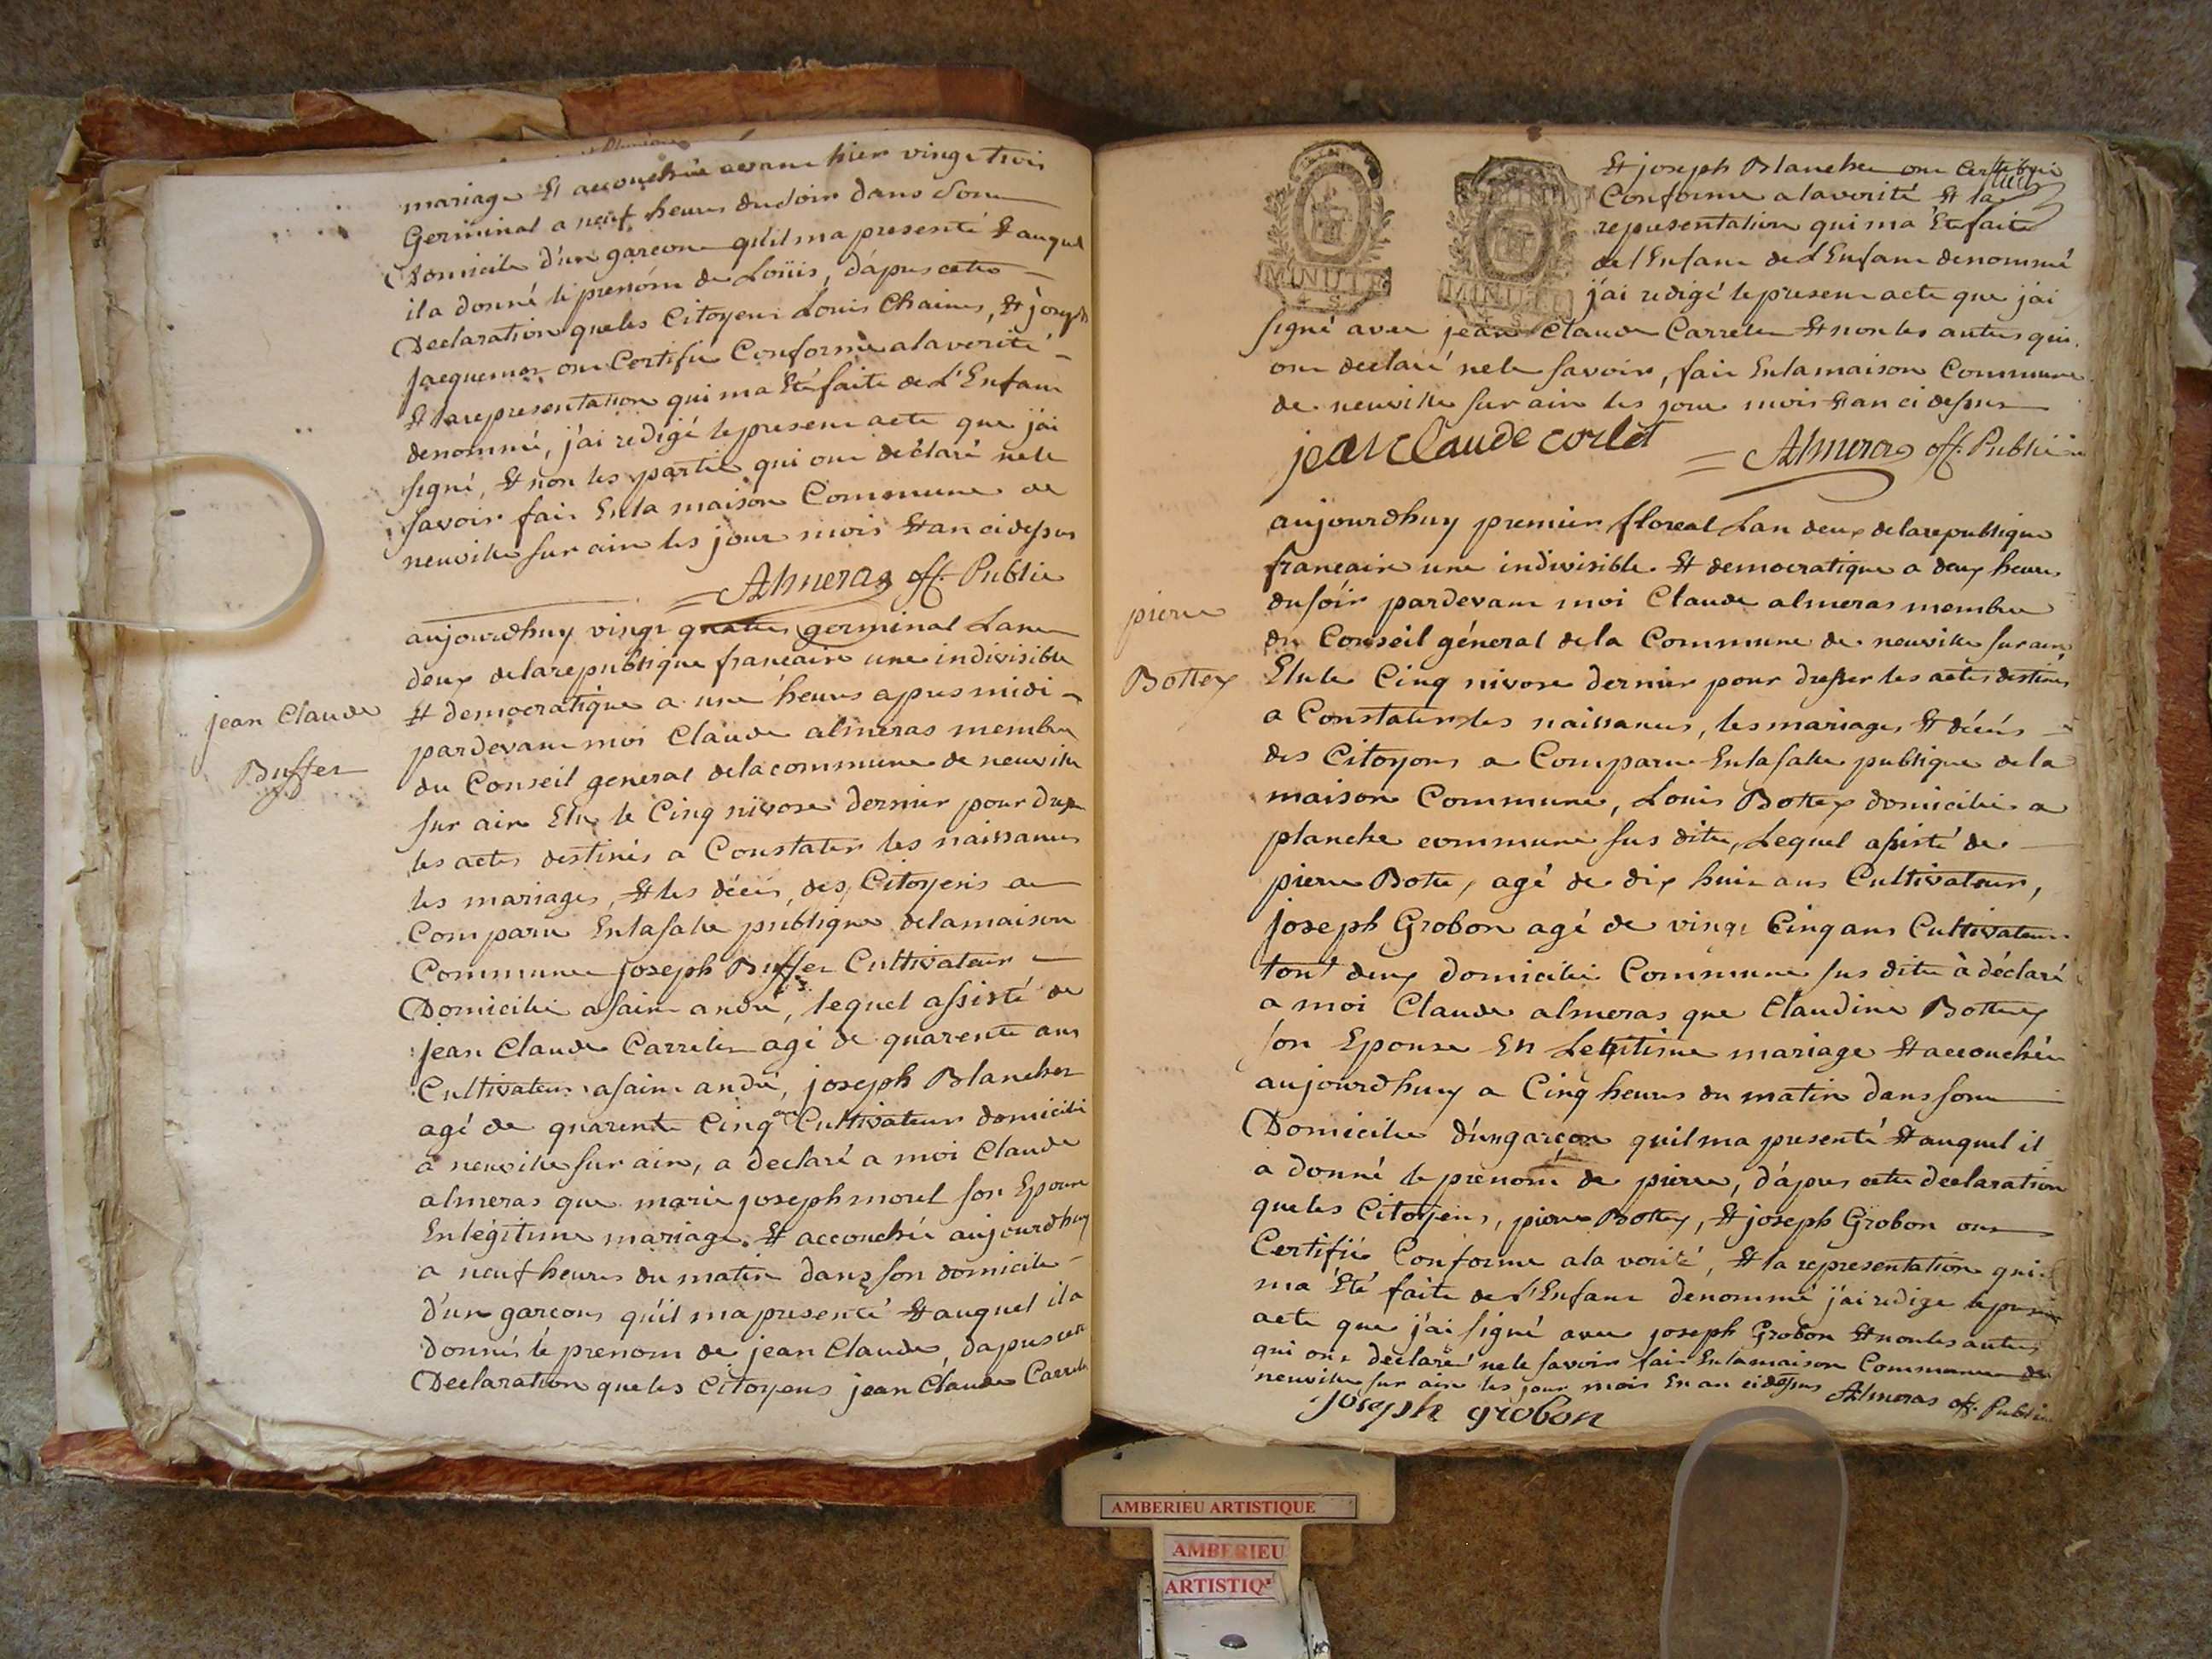 mariage Et accouchée avant hier vingt trois
Germinal a neuf heures du soir dans son
Domicile d'un garcon qu'il ma presenté Et auquel
il a donné le prenom de Loüis, d'apres cette
Declaration que les Citoyens Louis Chaines, Et joseph
jacquemot ont Certifié Conforme a la verité
Et la representation qui ma Eté faite de L'Enfant
denommé, j'ai redigé le present acte que j'ai
signé, Et non les parties qui ont déclaré ne le
savoir fait En la maison Commune de
neuville sur ain les jour mois Et an ci dessus
Almeras off. Public
jean Claude
Buffet
aujourdhuy vingt quatre germinal Lan
deux de la republique francaise une indivisible
Et democratique a une heures apres midi
pardevant moi Claude almeras membre
du Conseil general de la commune de neuville
sur ain Elu le Cinq nivose dernier pour dresser
les actes destinés a Constater les naissances
les mariages, Et les décès, des Citoyens a
Comparu En la salle publique de la maison
Commune joseph Buffet Cultivateur
Domicilié a saint andré, lequel assisté de
jean Claude Carrelet agé de quarente ans
Cultivateur a saint andré, joseph Blanchet
agé de quarente Cinq ans Cultivateur domicilié
a neuville sur ain, a declaré a moi Claude
almeras que marie joseph morel son Epouse
En légitime mariage. Et accouchée aujourdhuy
a neuf heures du matin dans son domicile
d'un garcons qu'il ma presenté Et auquel il a
donnés le prenom de jean Claude, dapres cette
Declaration que les Citoyens jean Claude Carrelet
MINUTE
4 S
MINUTE
4 S
Et joseph Blanchet ont Certifié
Conforme a la verité Et la
representation qui ma Eté faite
de l'Enfant de L'Enfant denommé
j'ai redigé le present acte que j'ai
signé avec jean Claude Carrelet Et non les autres qui
ont declaré ne le savoir, fait En la maison Commune
de neuville sur ain les jour mois Et an ci dessus
jean claude corlet
Almeras off. Public
pierre
Bottex
aujourdhuy premier floreal Lan deux de la republique
francaise une indivisible. Et democratique a deux heures
du soir pardevant moi Claude almeras membre
du Conseil géneral de la Commune de neuville sur ain,
Elu le Cinq nivose dernier pour dresser les actes destinés
a Constater les naissances, les mariages Et décès
des Citoyens a Comparu En la salle publique de la
maison Commune, Louis Bottex domicilié a
planche commune sus dite, Lequel assisté de
pierre Bottex agé de dix huit ans Cultivateur,
joseph Grobon agé de vingt Cinq ans Cultivateur
tout deux domicilié Commune sus dite à déclaré
a moi Claude almeras que Claudine Bottex
son Epouse En Legitime mariage Et accouchée
aujourdhuy a Cinq heures du matin dans son
Domicile d'un garçon qu'il ma presenté Et auquel il
a donné le prenom de pierre, d'apres cette declaration
que les Citoyens, pierre Bottex, Et joseph Grobon ont
Certifié Conforme a la verité, Et la representation qui
ma Eté faite de L'Enfant denommé j'ai redigé le present
acte que j'ai signé avec joseph Grobon Et non les autres
qui ont declaré ne le savoir fait En la maison Commune de
neuville sur ain les jour mois En an ci dessus Almeras off. Public
joseph grobon
AMBERIEU ARTISTIQUE
AMBERIEU
ARTISTIQ